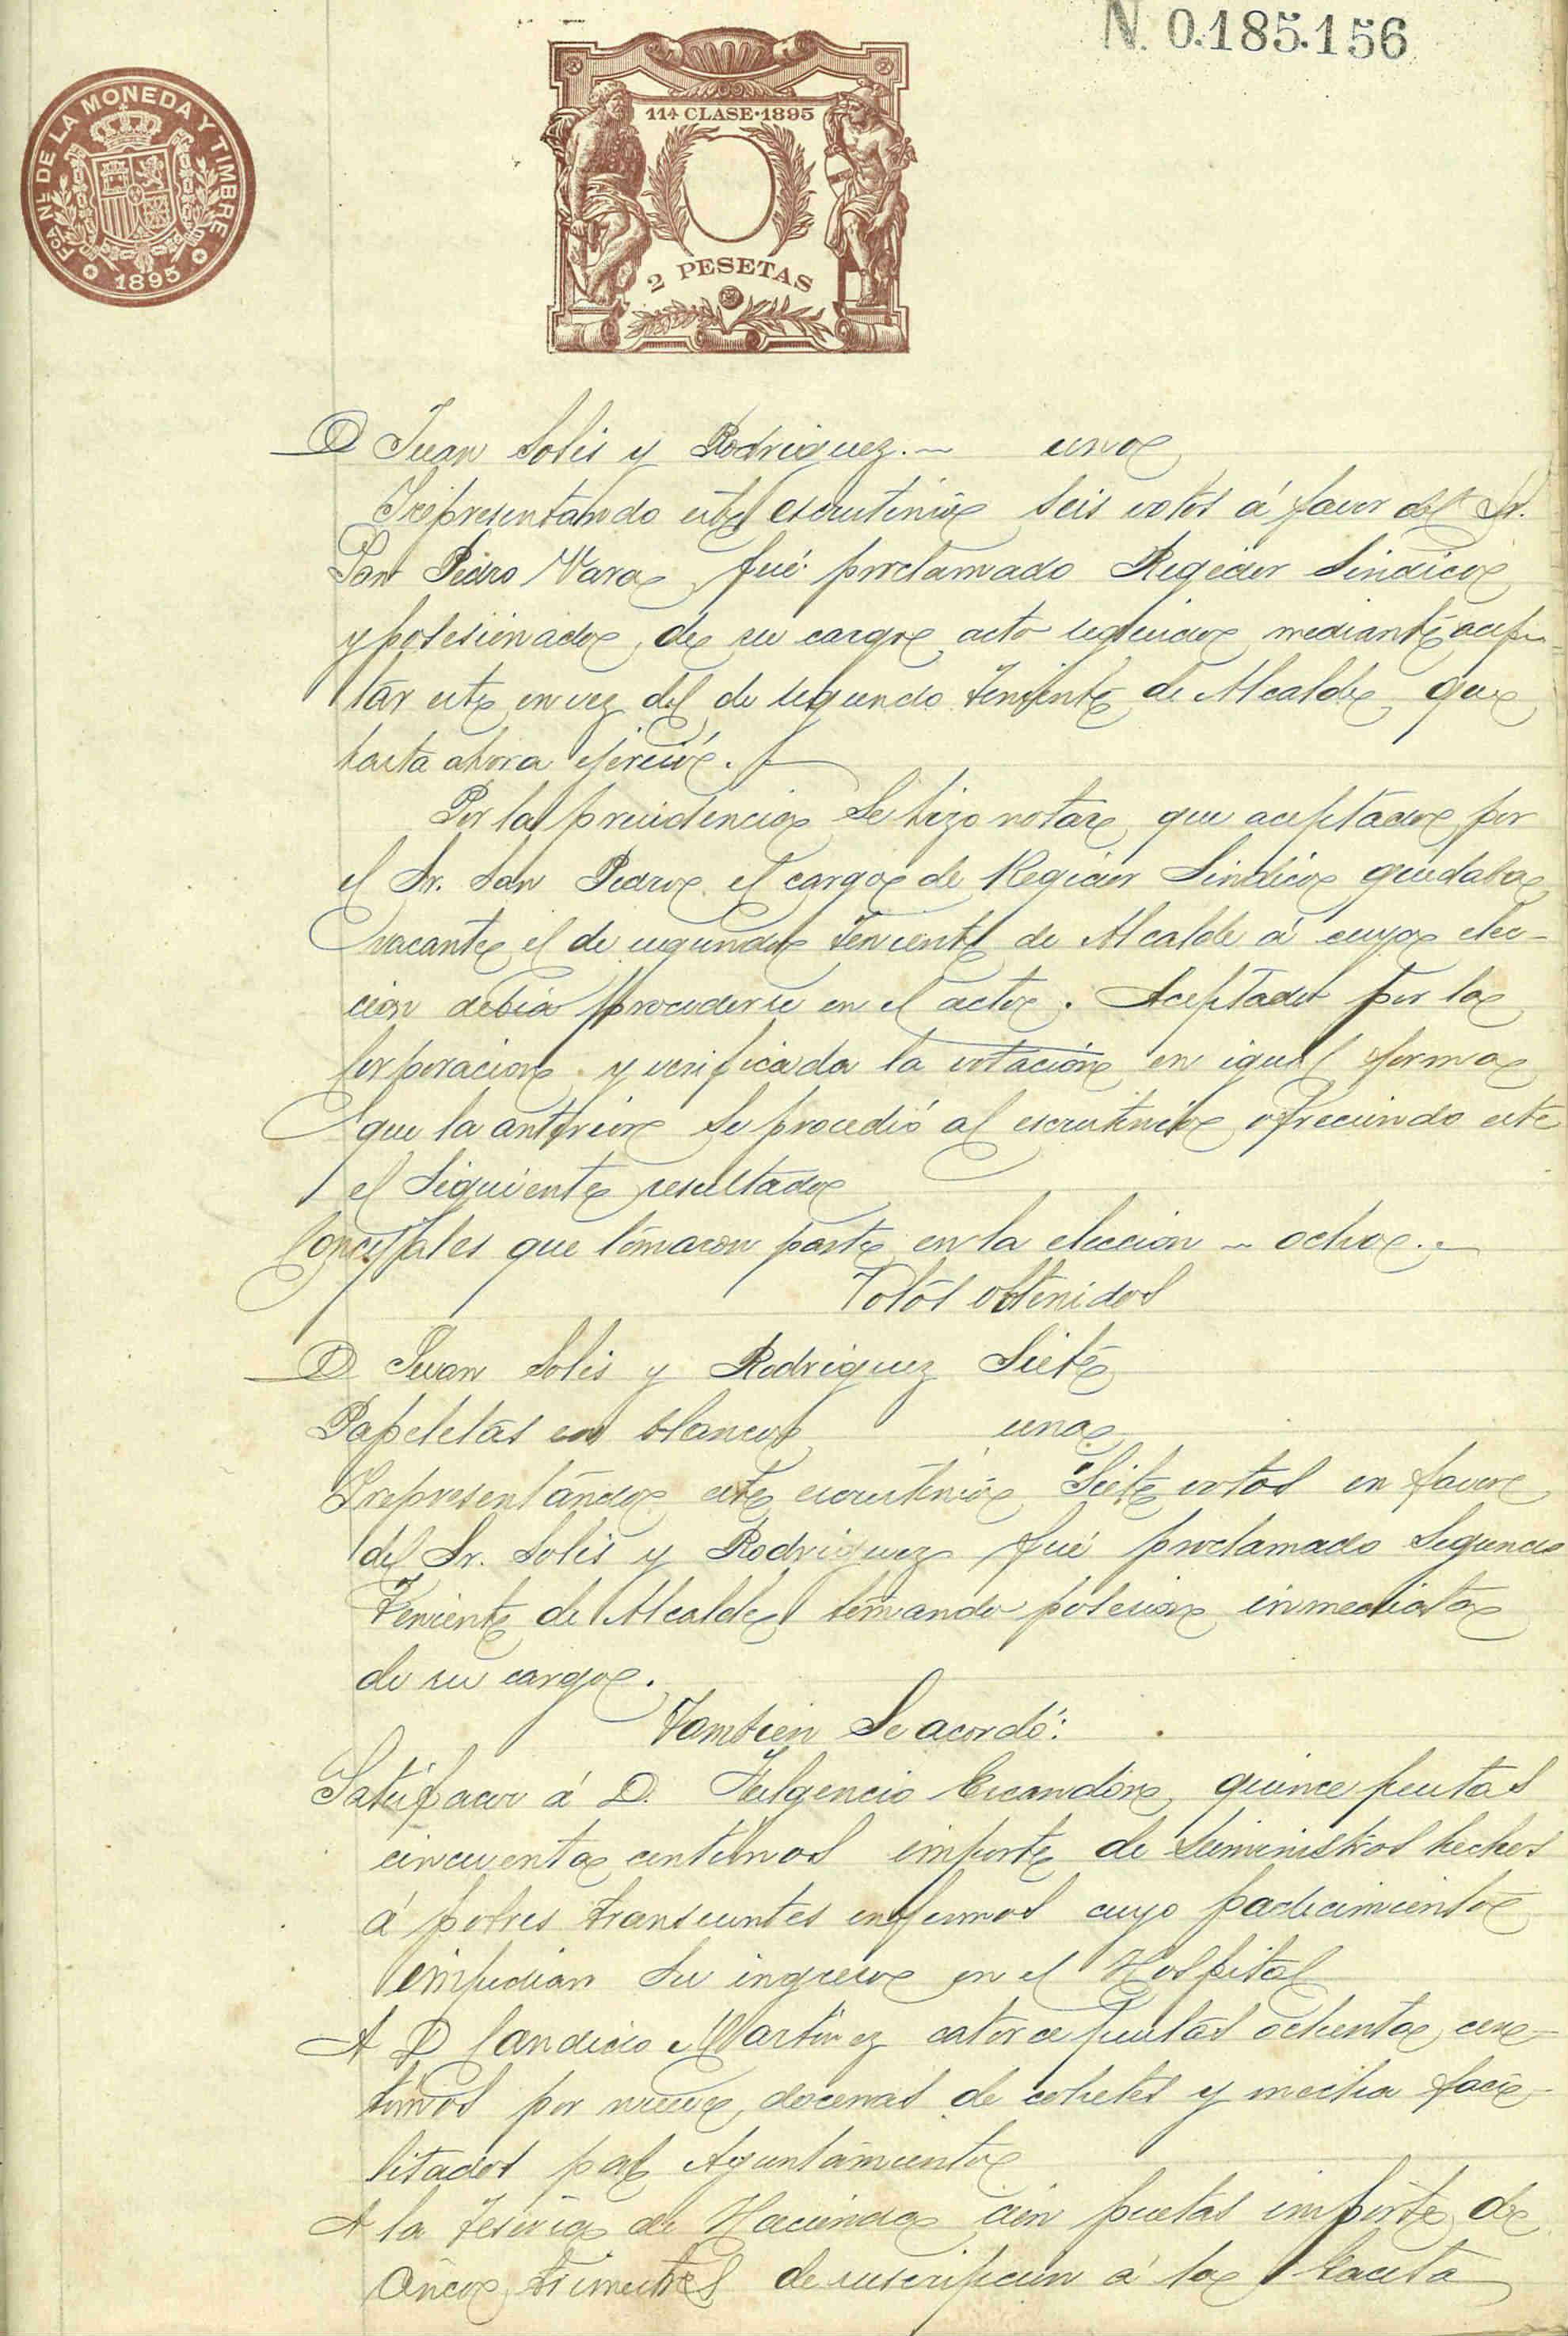 N. 0.185.156
FCA NL DE LA MONEDA Y TIMBRE
1895
11ª CLASE·1895
2 PESETAS
D Juan Solis y Rodriguez.~ uno
Y representando este escrutinio seis votos á favor del Sr.
San Pedro Vara fué proclamado Regidor Sindico
y posesionado de su cargo acto seguido mediante acep-
tar este en vez del de segundo Teniente de Alcalde que
hasta ahora ejerció.
Por la presidencia se hizo notar que aceptado por
el Sr. San Pedro el cargo de Regidor Sindico quedaba
vacante el de segundo Teniente de Alcalde á cuya elec-
cion debia procederse en el acto. Aceptado por la
Corporacion y verificada la votación en igual forma
que la anterior se procedió al escrutinio ofreciendo este
el siguiente resultado
Concejales que tomaron parte en la eleccion ~ ocho.~
Votos obtenidos
D Juan Solis y Rodriguez Siete
Papeletas en blanco una
Y representando este escrutinio siete votos en favor
del Sr. Solis y Rodriguez fué proclamado Segundo
Teniente de Alcalde tomando posesion inmediata
de su cargo.
Tambien se acordó:
Satisfacer á D. Fulgencio Escandon quince pesetas
cincuenta centimos importe de suministros hechos
á pobres transeuntes enfermos cuyo padecimiento
impedian su ingreso en el Hospital
A D Candido Martinez catorce pesetas ochenta cen-
timos por nueve docenas de cohetes y mecha faci-
litados al Ayuntamiento
A la Teseria de Hacienda cien pesetas importe de
cinco trimestres de suscripcion á la Gaceta